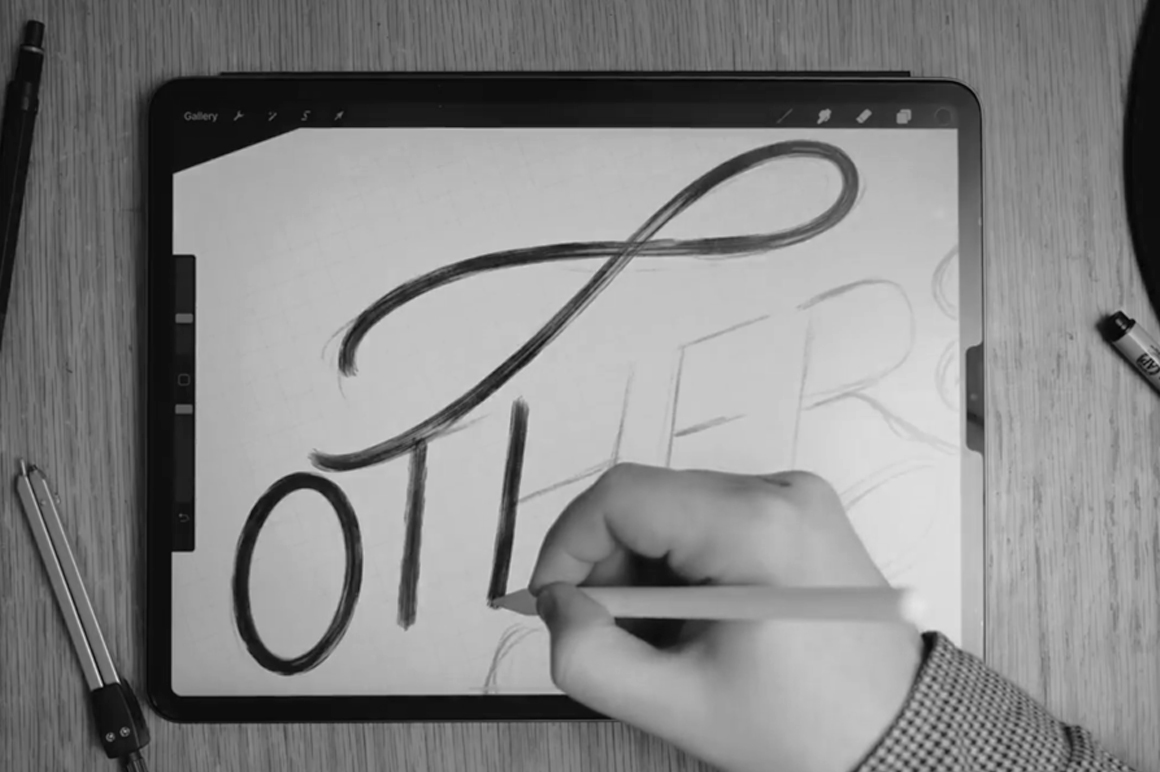 Gallery
OTHER